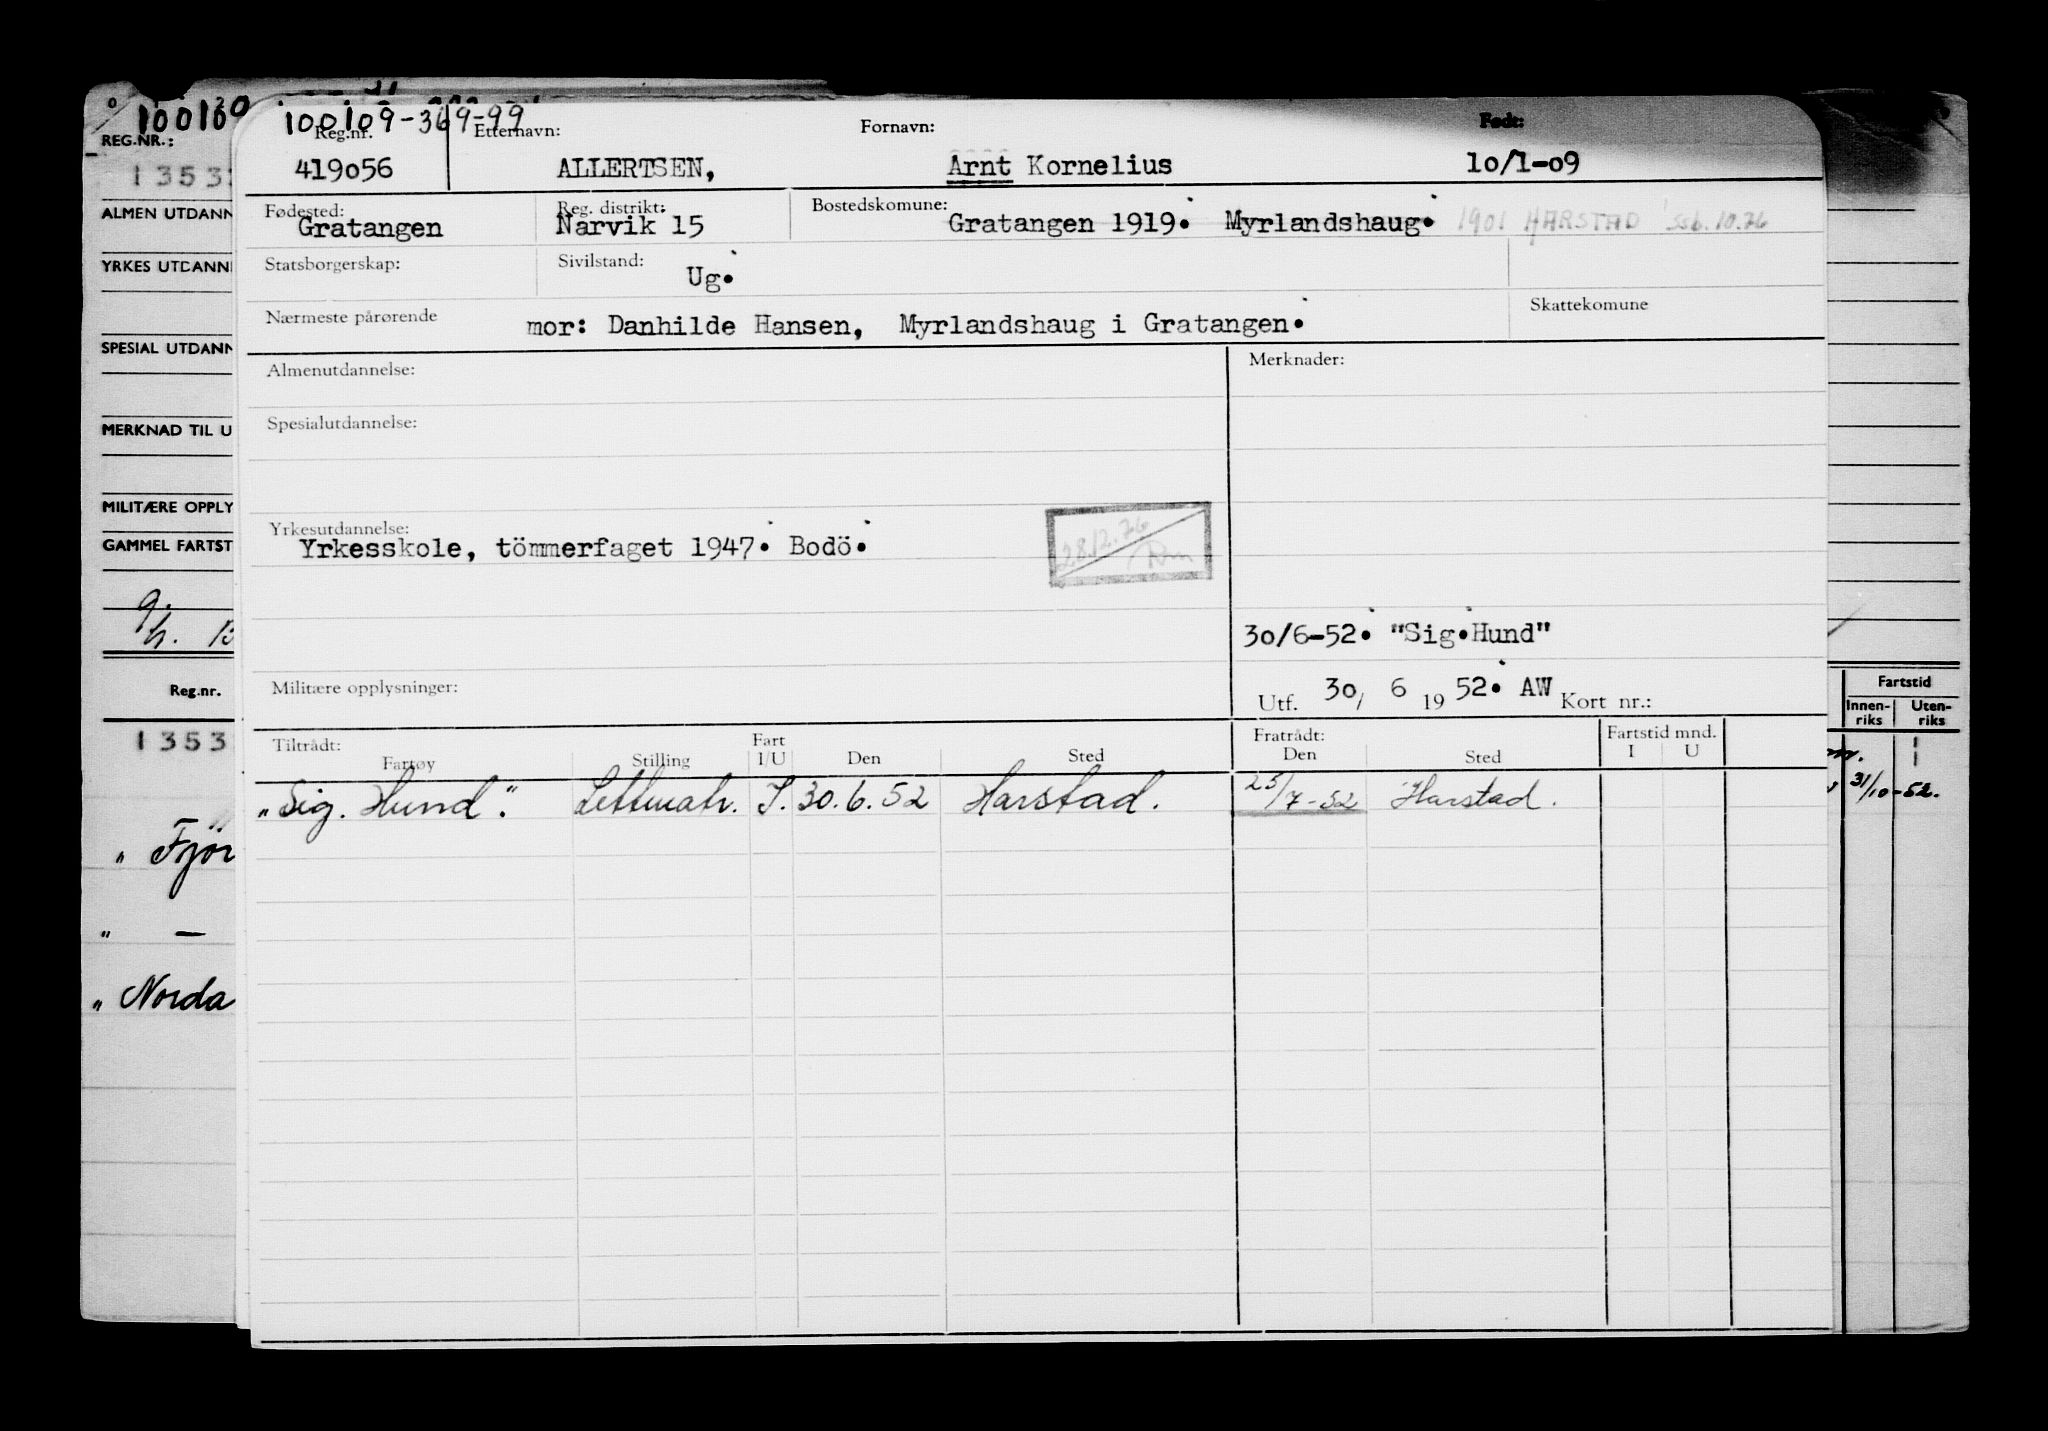 100109-369-99
Reg.nr. Etternavn: Fornavn: Født:
419056 ALLERTSEN, Arnt Kornelius 10/1-09
Fødested: Reg. distrikt: Bostedskomune:
Gratangen Narvik 15 Gratangen 1919. Myrlandshaug. 1901 HARSTAD ssb. 10.76
Statsborgerskap: Sivilstand: Ug.
Nærmeste pårørende mor: Danhilde Hansen, Myrlandshaug i Gratangen. Skattekomune
Almenutdannelse: Merknader:
Spesialutdannelse:
Yrkesutdannelse:
Yrkesskole, tömmerfaget 1947. Bodö. 28.12.76
30/6-52. "Sig.Hund"
Militære opplysninger: Utf. 30/ 6 19 52. AW Kort nr.:
Tiltrådt: Fratrådt: Fartstid mnd.
Fartøy Stilling Fart I/U Den Sted Den Sted I U
"Sig. Hund". Lettmatr. I. 30.6.52 Harstad. 25/7-52 Harstad.
REG.NR.:
1353
ALMEN UTDANN
YRKES UTDANN
SPESIAL UTDANN
MERKNAD TIL U
MILITÆRE OPPLY
GAMMEL FARTST
Reg.nr.
1353
" Fjor
" —
" Norda
Fartstid
Innen-riks Uten-riks
31/10-52.